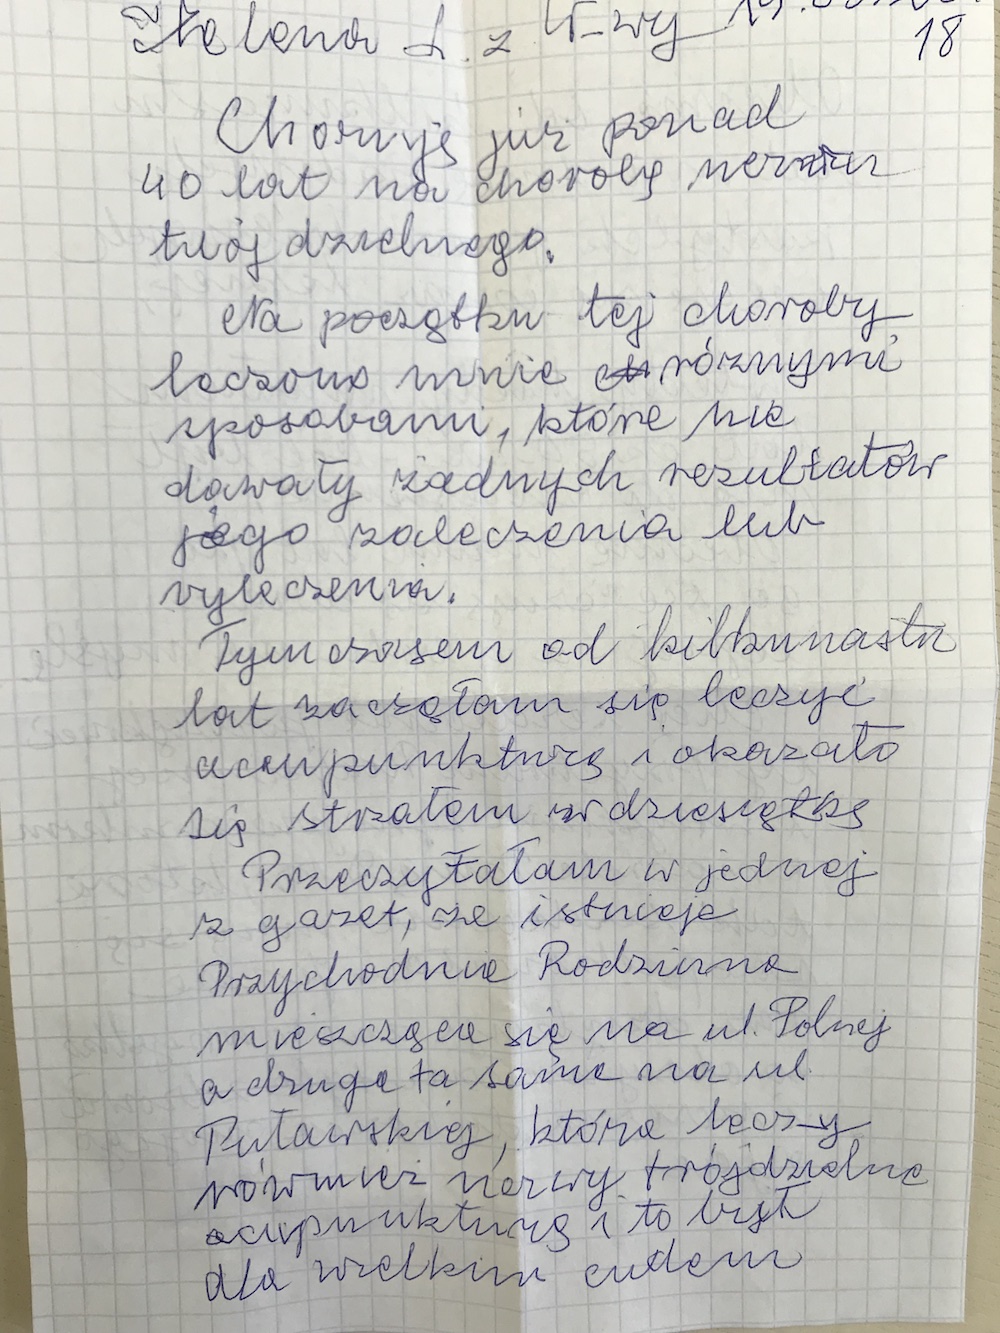 Helena L. z W-wy
18
Choruję już ponad
40 lat na chorobę nerwu
trójdzielnego.
Na początku tej choroby
leczono mnie różnymi
sposobami, które nie
dawały żadnych rezultatów
jego zaleczenia lub
wyleczenia.
Tymczasem od kilkunastu
lat zaczęłam się leczyć
acupunkturą i okazało
się strzałem w dziesiątkę
Przeczytałam w jednej
z gazet, że istnieje
Przychodnia Rodzinna
mieszcząca się na ul. Polnej
a druga ta sama na ul.
Puławskiej, która leczy
również nerwy trójdzielne
acupunkturą i to był
dla wielkim cudem